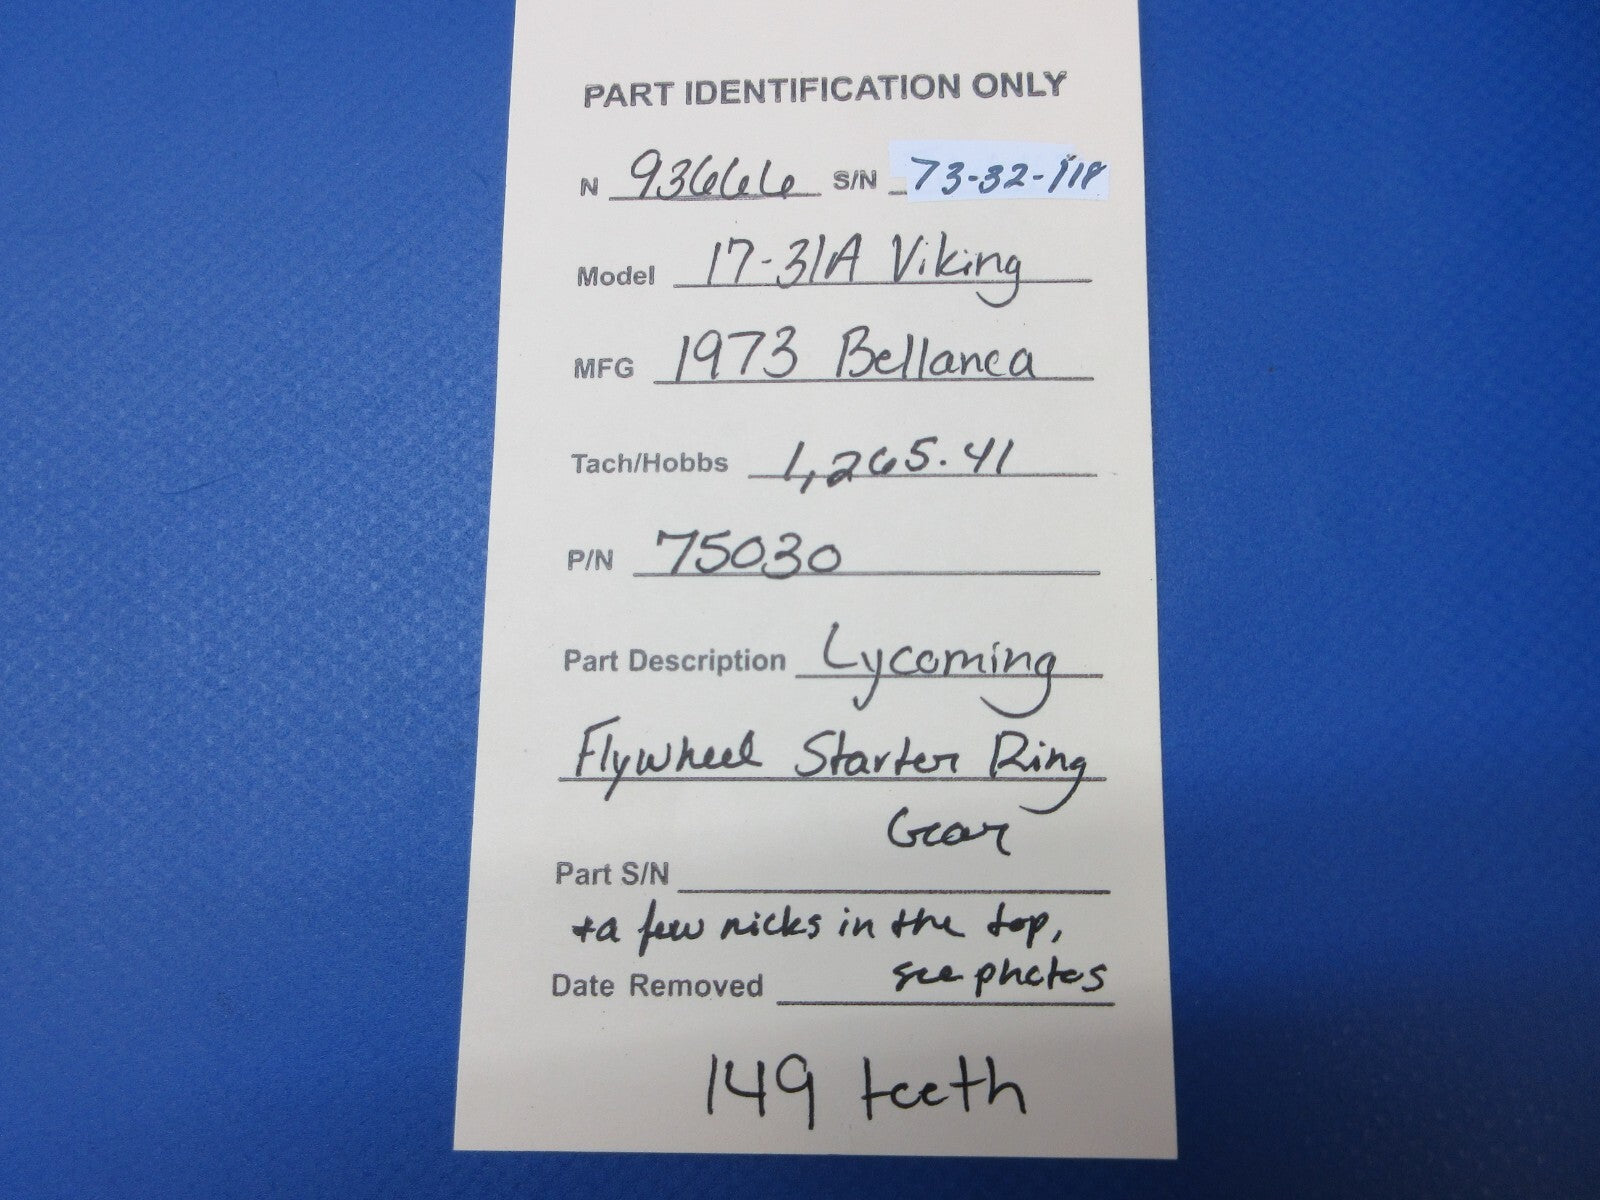 PART IDENTIFICATION ONLY
N 93666 S/N 73-32-118
Model 17-31A Viking
MFG 1973 Bellanca
Tach/Hobbs 1,265.41
P/N 75030
Part Description Lycoming
Flywheel Starter Ring
Gear
Part S/N
+a few nicks in the top,
see photos
Date Removed
149 teeth